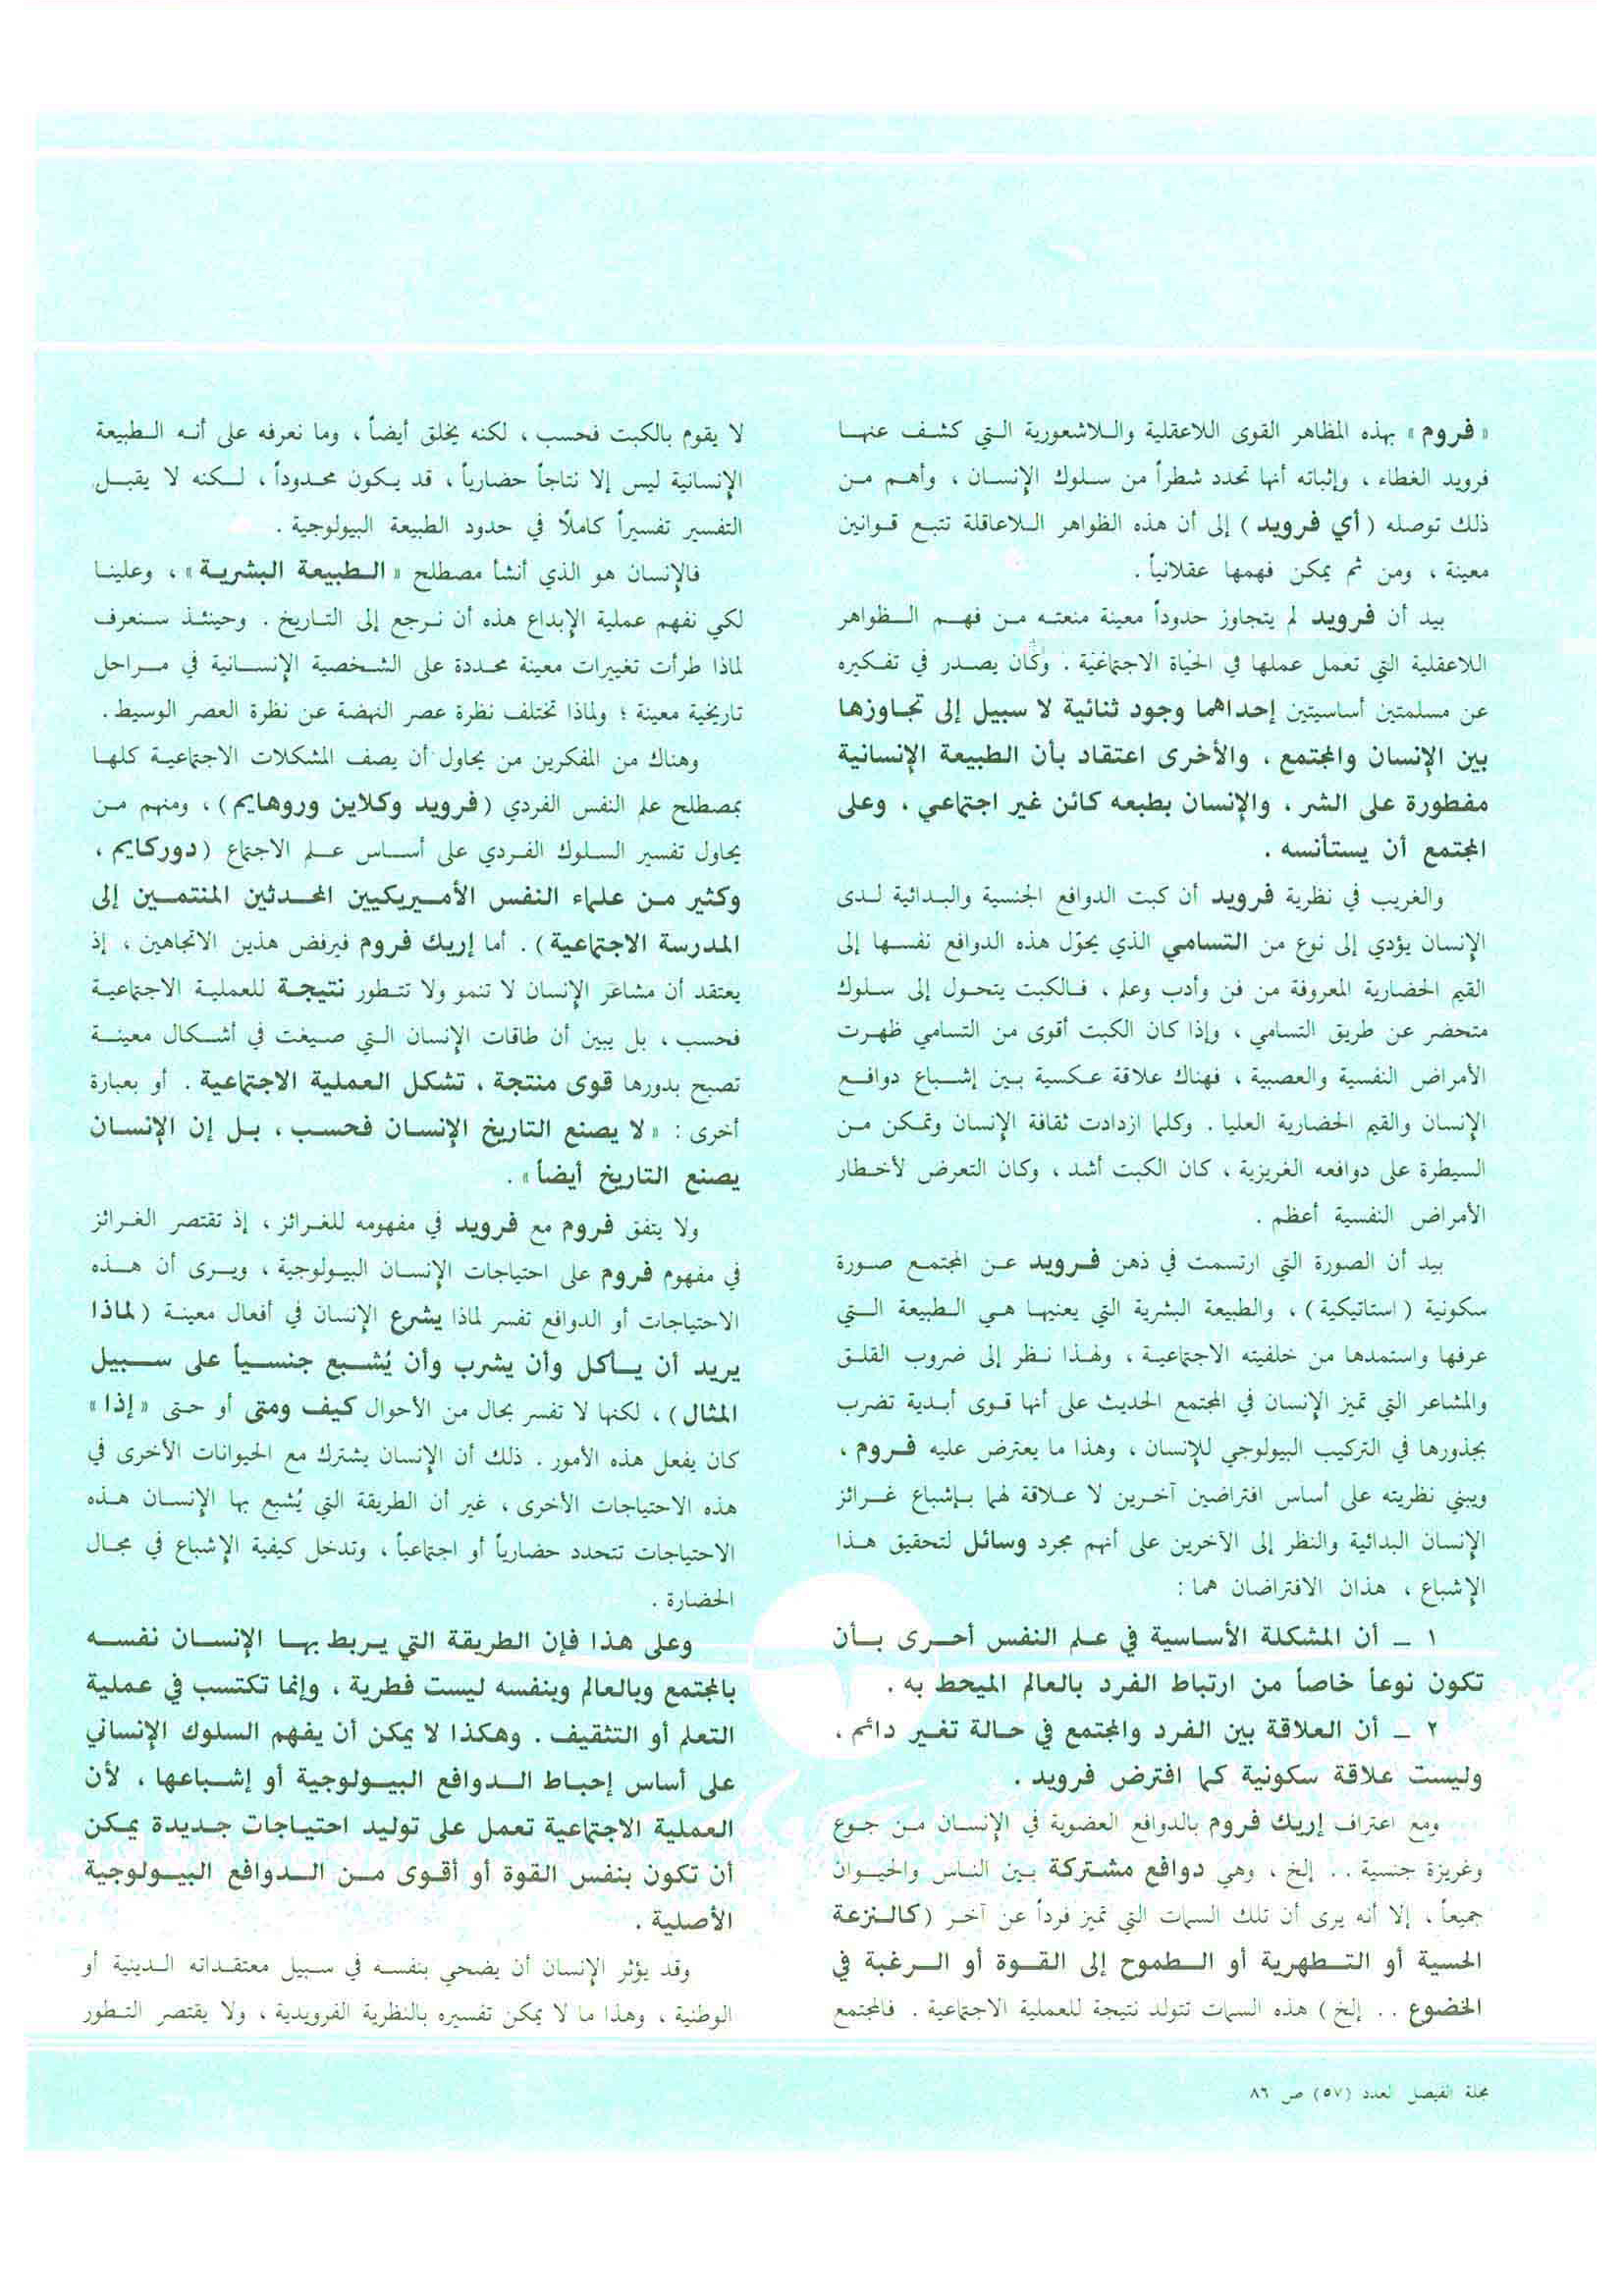 « فروم » بهذه المظاهر القوى اللاعقلية واللاشعورية التي كشف عنها
فرويد الغطاء ، وإثباته أنها تحدد شطراً من سلوك الإنسان ، وأهم من
ذلك توصله ( أي فرويد ) إلى أن هذه الظواهر اللاعاقلة تتبع قوانين
معينة ، ومن ثم يمكن فهمها عقلانياً .
بيد أن فرويد لم يتجاوز حدوداً معينة منعته من فهم الظواهر
اللاعقلية التي تعمل عملها في الحياة الاجتماعية . وكان يصدر في تفكيره
عن مسلمتين أساسيتين إحداهما وجود ثنائية لا سبيل إلى تجاوزها
بين الإنسان والمجتمع ، والأخرى اعتقاد بأن الطبيعة الإنسانية
مفطورة على الشر ، والإنسان بطبعه كائن غير اجتماعي ، وعلى
المجتمع أن يستأنسه .
والغريب في نظرية فرويد أن كبت الدوافع الجنسية والبدائية لدى
الإنسان يؤدي إلى نوع من التسامي الذي يحوّل هذه الدوافع نفسها إلى
القيم الحضارية المعروفة من فن وأدب وعلم ، فالكبت يتحول إلى سلوك
متحضر عن طريق التسامي ، وإذا كان الكبت أقوى من التسامي ظهرت
الأمراض النفسية والعصبية ، فهناك علاقة عكسية بين إشباع دوافع
الإنسان والقيم الحضارية العليا . وكلما ازدادت ثقافة الإنسان وتمكن من
السيطرة على دوافعه الغريزية ، كان الكبت أشد ، وكان التعرض لأخطار
الأمراض النفسية أعظم .
بيد أن الصورة التي ارتسمت في ذهن فرويد عن المجتمع صورة
سكونية ( استاتيكية ) ، والطبيعة البشرية التي يعنيها هي الطبيعة التي
عرفها واستمدها من خلفيته الاجتماعية ، ولهذا نظر إلى ضروب القلق
والمشاعر التي تميز الإنسان في المجتمع الحديث على أنها قوى أبدية تضرب
بجذورها في التركيب البيولوجي للإنسان ، وهذا ما يعترض عليه فروم ،
ويبني نظريته على أساس افتراضين آخرين لا علاقة لهما بإشباع غرائز
الإنسان البدائية والنظر إلى الآخرين على أنهم مجرد وسائل لتحقيق هذا
الإشباع ، هذان الافتراضان هما :
١ ــ أن المشكلة الأساسية في علم النفس أحرى بأن
تكون نوعاً خاصاً من ارتباط الفرد بالعالم المحيط به .
٢ ــ أن العلاقة بين الفرد والمجتمع في حالة تغير دائم ،
وليست علاقة سكونية كما افترض فرويد .
ومع اعتراف إريك فروم بالدوافع العضوية في الإنسان من جوع
وغريزة جنسية .. إلخ ، وهي دوافع مشتركة بين الناس والحيوان
جميعاً ، إلا أنه يرى أن تلك السمات التي تميز فرداً عن آخر ( كالنزعة
الحسية أو التطهرية أو الطموح إلى القوة أو الرغبة في
الخضوع .. إلخ ) هذه السمات تتولد نتيجة للعملية الاجتماعية . فالمجتمع
لا يقوم بالكبت فحسب ، لكنه يخلق أيضاً ، وما نعرفه على أنه الطبيعة
الإنسانية ليس إلا نتاجاً حضارياً ، قد يكون محدوداً ، لكنه لا يقبل
التفسير تفسيراً كاملاً في حدود الطبيعة البيولوجية .
فالإنسان هو الذي أنشأ مصطلح « الطبيعة البشرية » ، وعلينا
لكي نفهم عملية الإبداع هذه أن نرجع إلى التاريخ . وحينئذ سنعرف
لماذا طرأت تغييرات معينة محددة على الشخصية الإنسانية في مراحل
تاريخية معينة ؛ ولماذا تختلف نظرة عصر النهضة عن نظرة العصر الوسيط .
وهناك من المفكرين من يحاول أن يصف المشكلات الاجتماعية كلها
بمصطلح علم النفس الفردي ( فرويد وكلاين وروهايم ) ، ومنهم من
يحاول تفسير السلوك الفردي على أساس علم الاجتماع ( دوركايم ،
وكثير من علماء النفس الأميريكيين المحدثين المنتمين إلى
المدرسة الاجتماعية ) . أما إريك فروم فيرفض هذين الاتجاهين ، إذ
يعتقد أن مشاعر الإنسان لا تنمو ولا تتطور نتيجة للعملية الاجتماعية
فحسب ، بل يبين أن طاقات الإنسان التي صيغت في أشكال معينة
تصبح بدورها قوى منتجة ، تشكل العملية الاجتماعية . أو بعبارة
أخرى : « لا يصنع التاريخ الإنسان فحسب ، بل إن الإنسان
يصنع التاريخ أيضاً » .
ولا يتفق فروم مع فرويد في مفهومه للغرائز ، إذ تقتصر الغرائز
في مفهوم فروم على احتياجات الإنسان البيولوجية ، ويرى أن هذه
الاحتياجات أو الدوافع تفسر لماذا يشرع الإنسان في أفعال معينة ( لماذا
يريد أن يأكل وأن يشرب وأن يُشبع جنسياً على سبيل
المثال ) ، لكنها لا تفسر بحال من الأحوال كيف ومتى أو حتى « إذا »
كان يفعل هذه الأمور . ذلك أن الإنسان يشترك مع الحيوانات الأخرى في
هذه الاحتياجات الأخرى ، غير أن الطريقة التي يُشبع بها الإنسان هذه
الاحتياجات تتحدد حضارياً أو اجتماعياً ، وتدخل كيفية الإشباع في مجال
الحضارة .
وعلى هذا فإن الطريقة التي يربط بها الإنسان نفسه
بالمجتمع وبالعالم وبنفسه ليست فطرية ، وإنما تكتسب في عملية
التعلم أو التثقيف . وهكذا لا يمكن أن يفهم السلوك الإنساني
على أساس إحباط الدوافع البيولوجية أو إشباعها ، لأن
العملية الاجتماعية تعمل على توليد احتياجات جديدة يمكن
أن تكون بنفس القوة أو أقوى من الدوافع البيولوجية
الأصلية .
وقد يؤثر الإنسان أن يضحي بنفسه في سبيل معتقداته الدينية أو
الوطنية ، وهذا ما لا يمكن تفسيره بالنظرية الفرويدية ، ولا يقتصر التطور
مجلة الفيصل العدد (٥٧) ص ٨٦